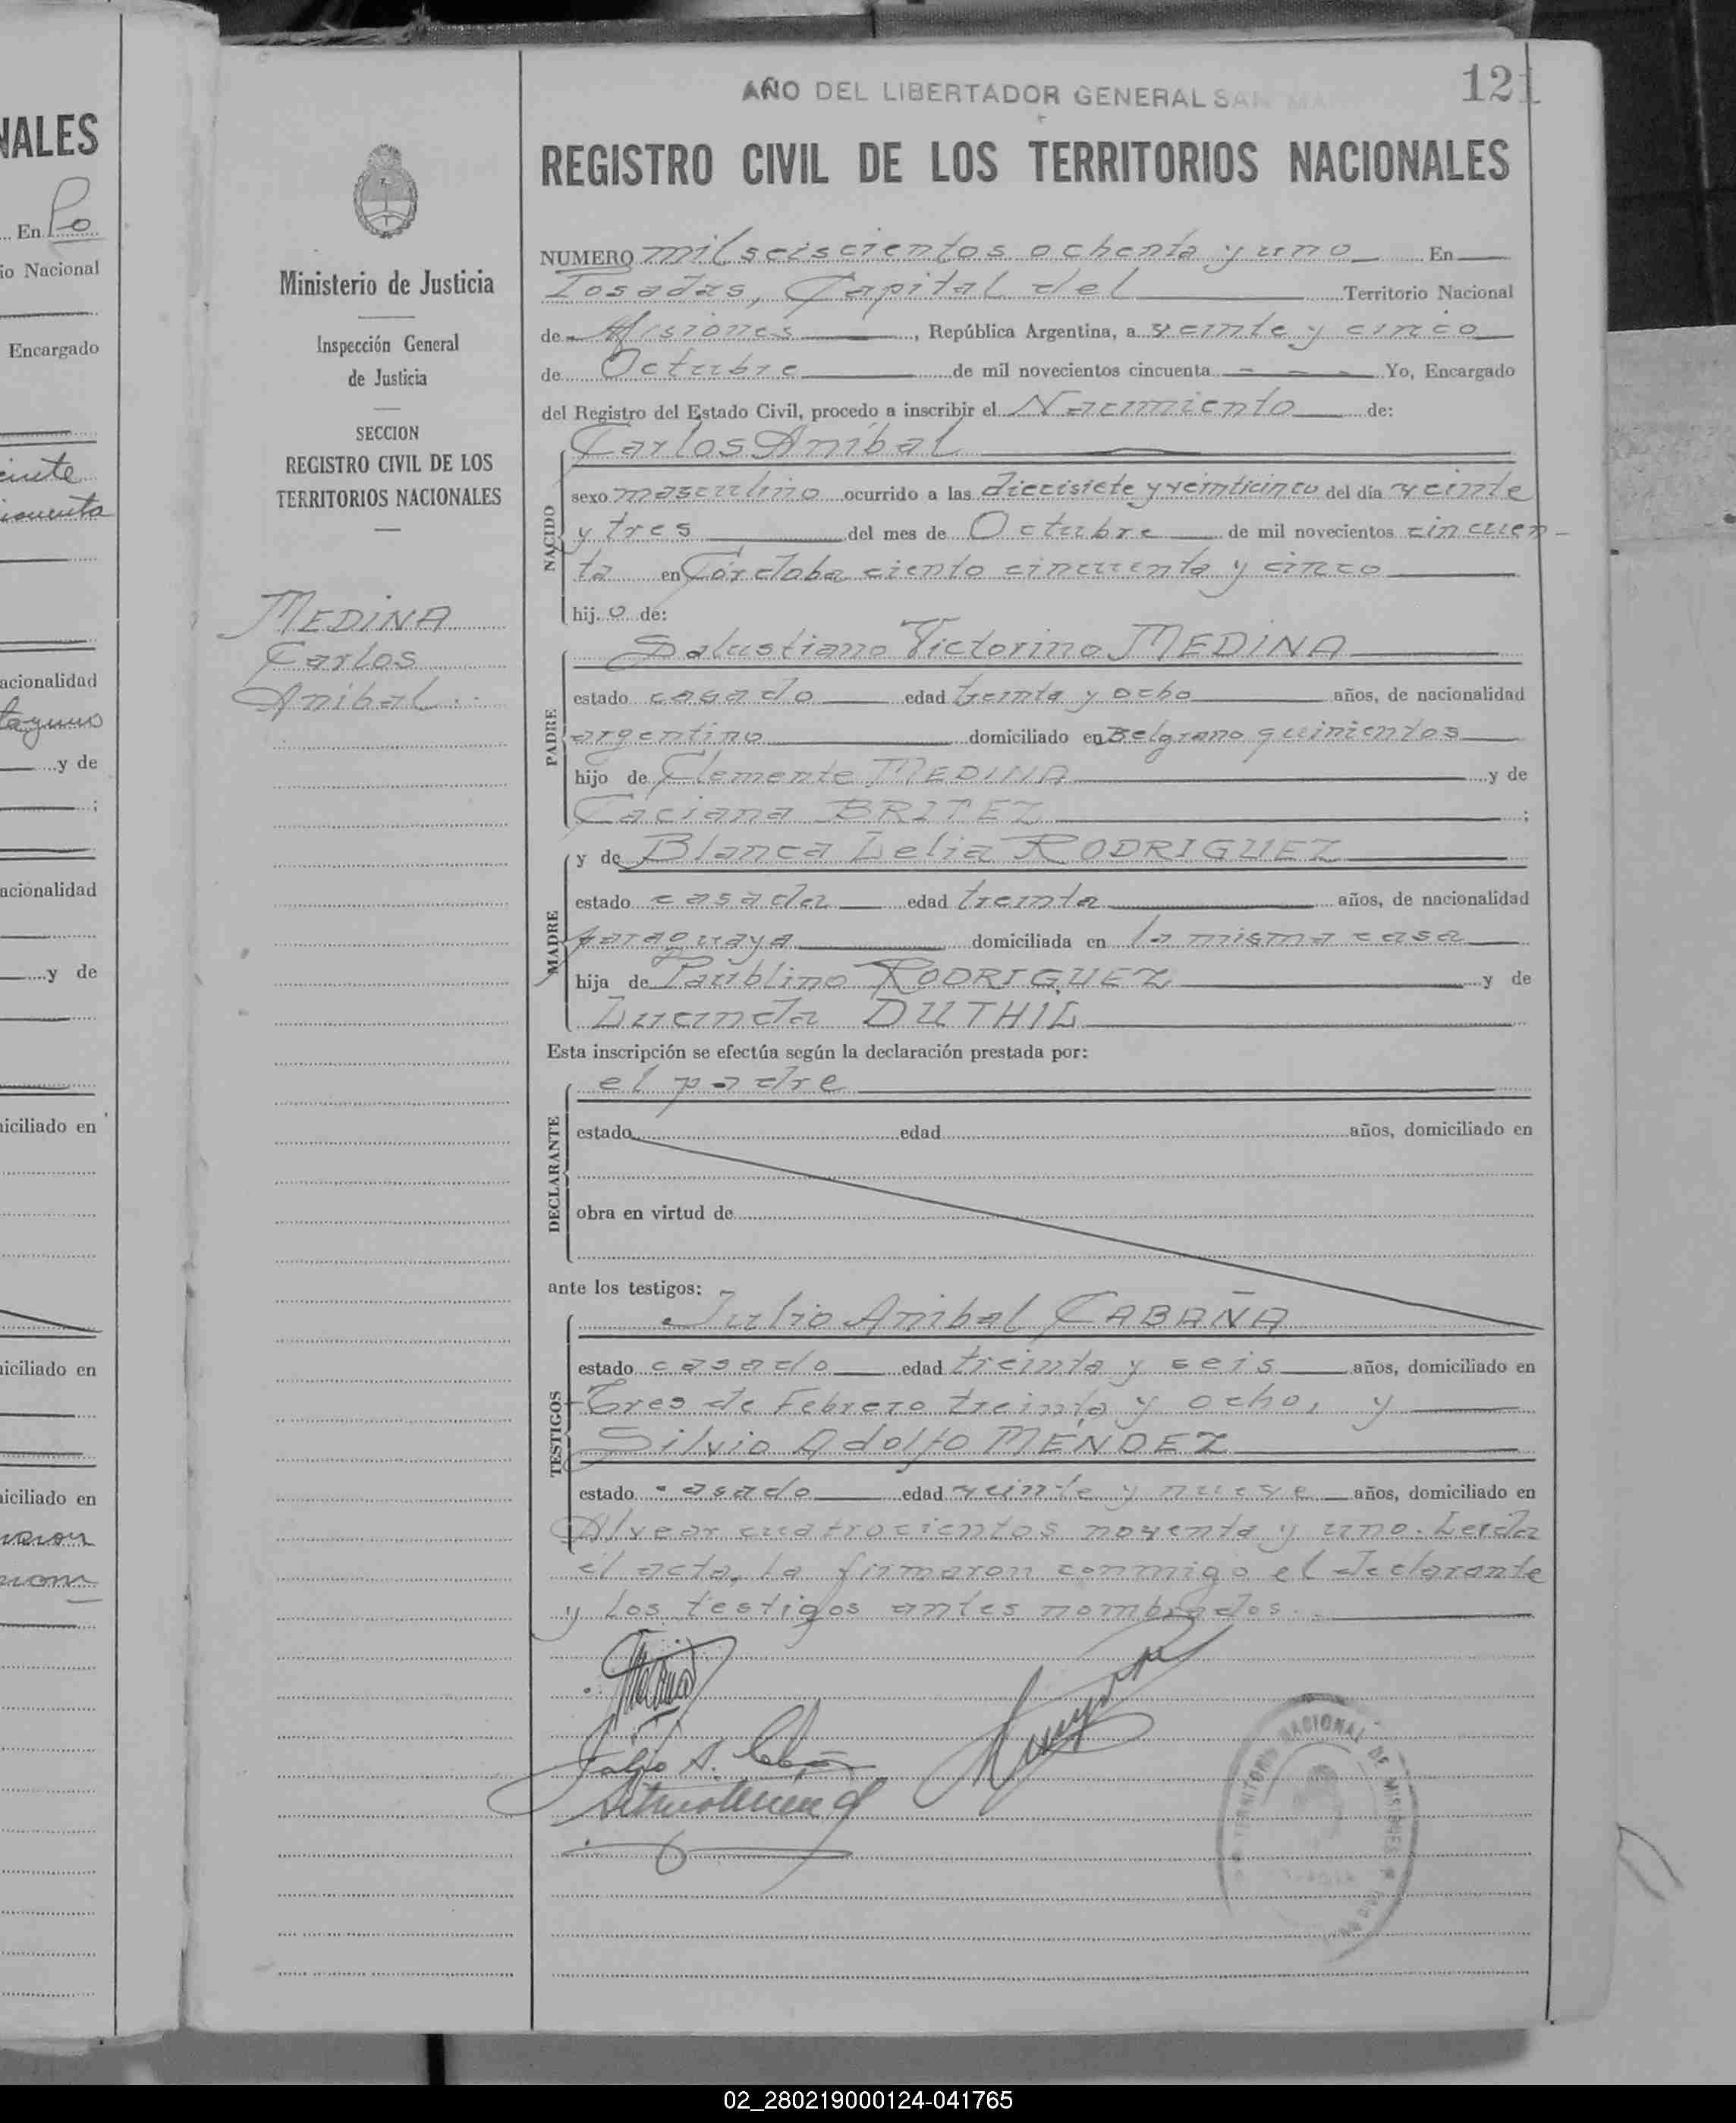 NALES
En Po
io Nacional
Encargado
acionalidad
y de
;
acionalidad
y de
iciliado en
iciliado en
iciliado en
Ministerio de Justicia
Inspección General
de Justicia
SECCION
REGISTRO CIVIL DE LOS
TERRITORIOS NACIONALES
MEDINA
Carlos
Anibal
AÑO DEL LIBERTADOR GENERAL SAN MA
121
REGISTRO CIVIL DE LOS TERRITORIOS NACIONALES
NUMERO mil seiscientos ochenta y uno En
Posadas, Capital del Territorio Nacional
de Misiones, República Argentina, a veinte y cinco
de Octubre de mil novecientos cincuenta - - - Yo, Encargado
del Registro del Estado Civil, procedo a inscribir el Nacimiento de:
NACIDO
Carlos Anibal
sexo masculino ocurrido a las diecisiete y veinticinco del día veinte
y tres del mes de Octubre de mil novecientos cincuen-
ta en Córdoba ciento cincuenta y cinco
hij o de:
PADRE
Salustiano Victorino MEDINA
estado casado edad treinta y ocho años, de nacionalidad
argentino domiciliado en Belgrano quinientos
hijo de Clemente MEDINA y de
Caciana BRITEZ ;
MADRE
y de Blanca Lelia RODRIGUEZ
estado casada edad treinta años, de nacionalidad
paraguaya domiciliada en la misma casa
hija de Paublino RODRIGUEZ y de
Lucinda DUTHIL
Esta inscripción se efectúa según la declaración prestada por:
DECLARANTE
el padre
estado edad años, domiciliado en
obra en virtud de
ante los testigos:
TESTIGOS
Julio Anibal CABAÑA
estado casado edad treinta y seis años, domiciliado en
Tres de Febrero treinta y ocho, y
Silvio Adolfo MENDEZ
estado casado edad veinte y nueve años, domiciliado en
Alvear cuatrocientos noventa y uno. Leida
el acta, la firmaron conmigo el declarante
y los testigos antes nombrados.
TERRITORIO NACIONAL DE MISIONES
02_280219000124-041765